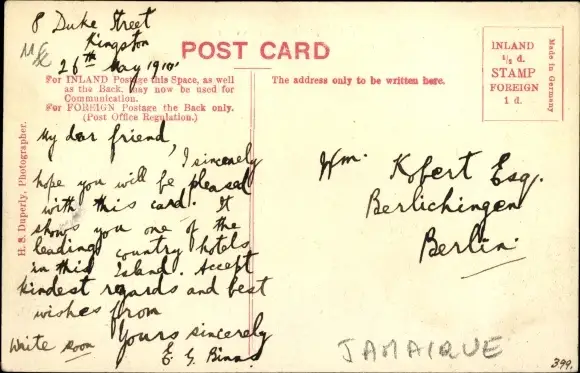 8 Duke Street
Kingston
26th May 1910.
POST CARD
For INLAND Postage this Space, as well
as the Back, may now be used for
Communication.
For FOREIGN Postage the Back only.
(Post Office Regulation.)
The address only to be written here.
INLAND
½ d.
STAMP
FOREIGN
1 d.
Made in Germany
H. S. Duperly, Photographer.
My dear friend,
I sincerely
hope you will be pleased
with this card. It
shows you one of the
leading country hotels
in this Island. Accept
kindest regards and best
wishes from
Yours sincerely
E. G. Binns
Write soon
Wm. Kobert Esq.
Berlichingen
Berlin.
JAMAIQUE
399.